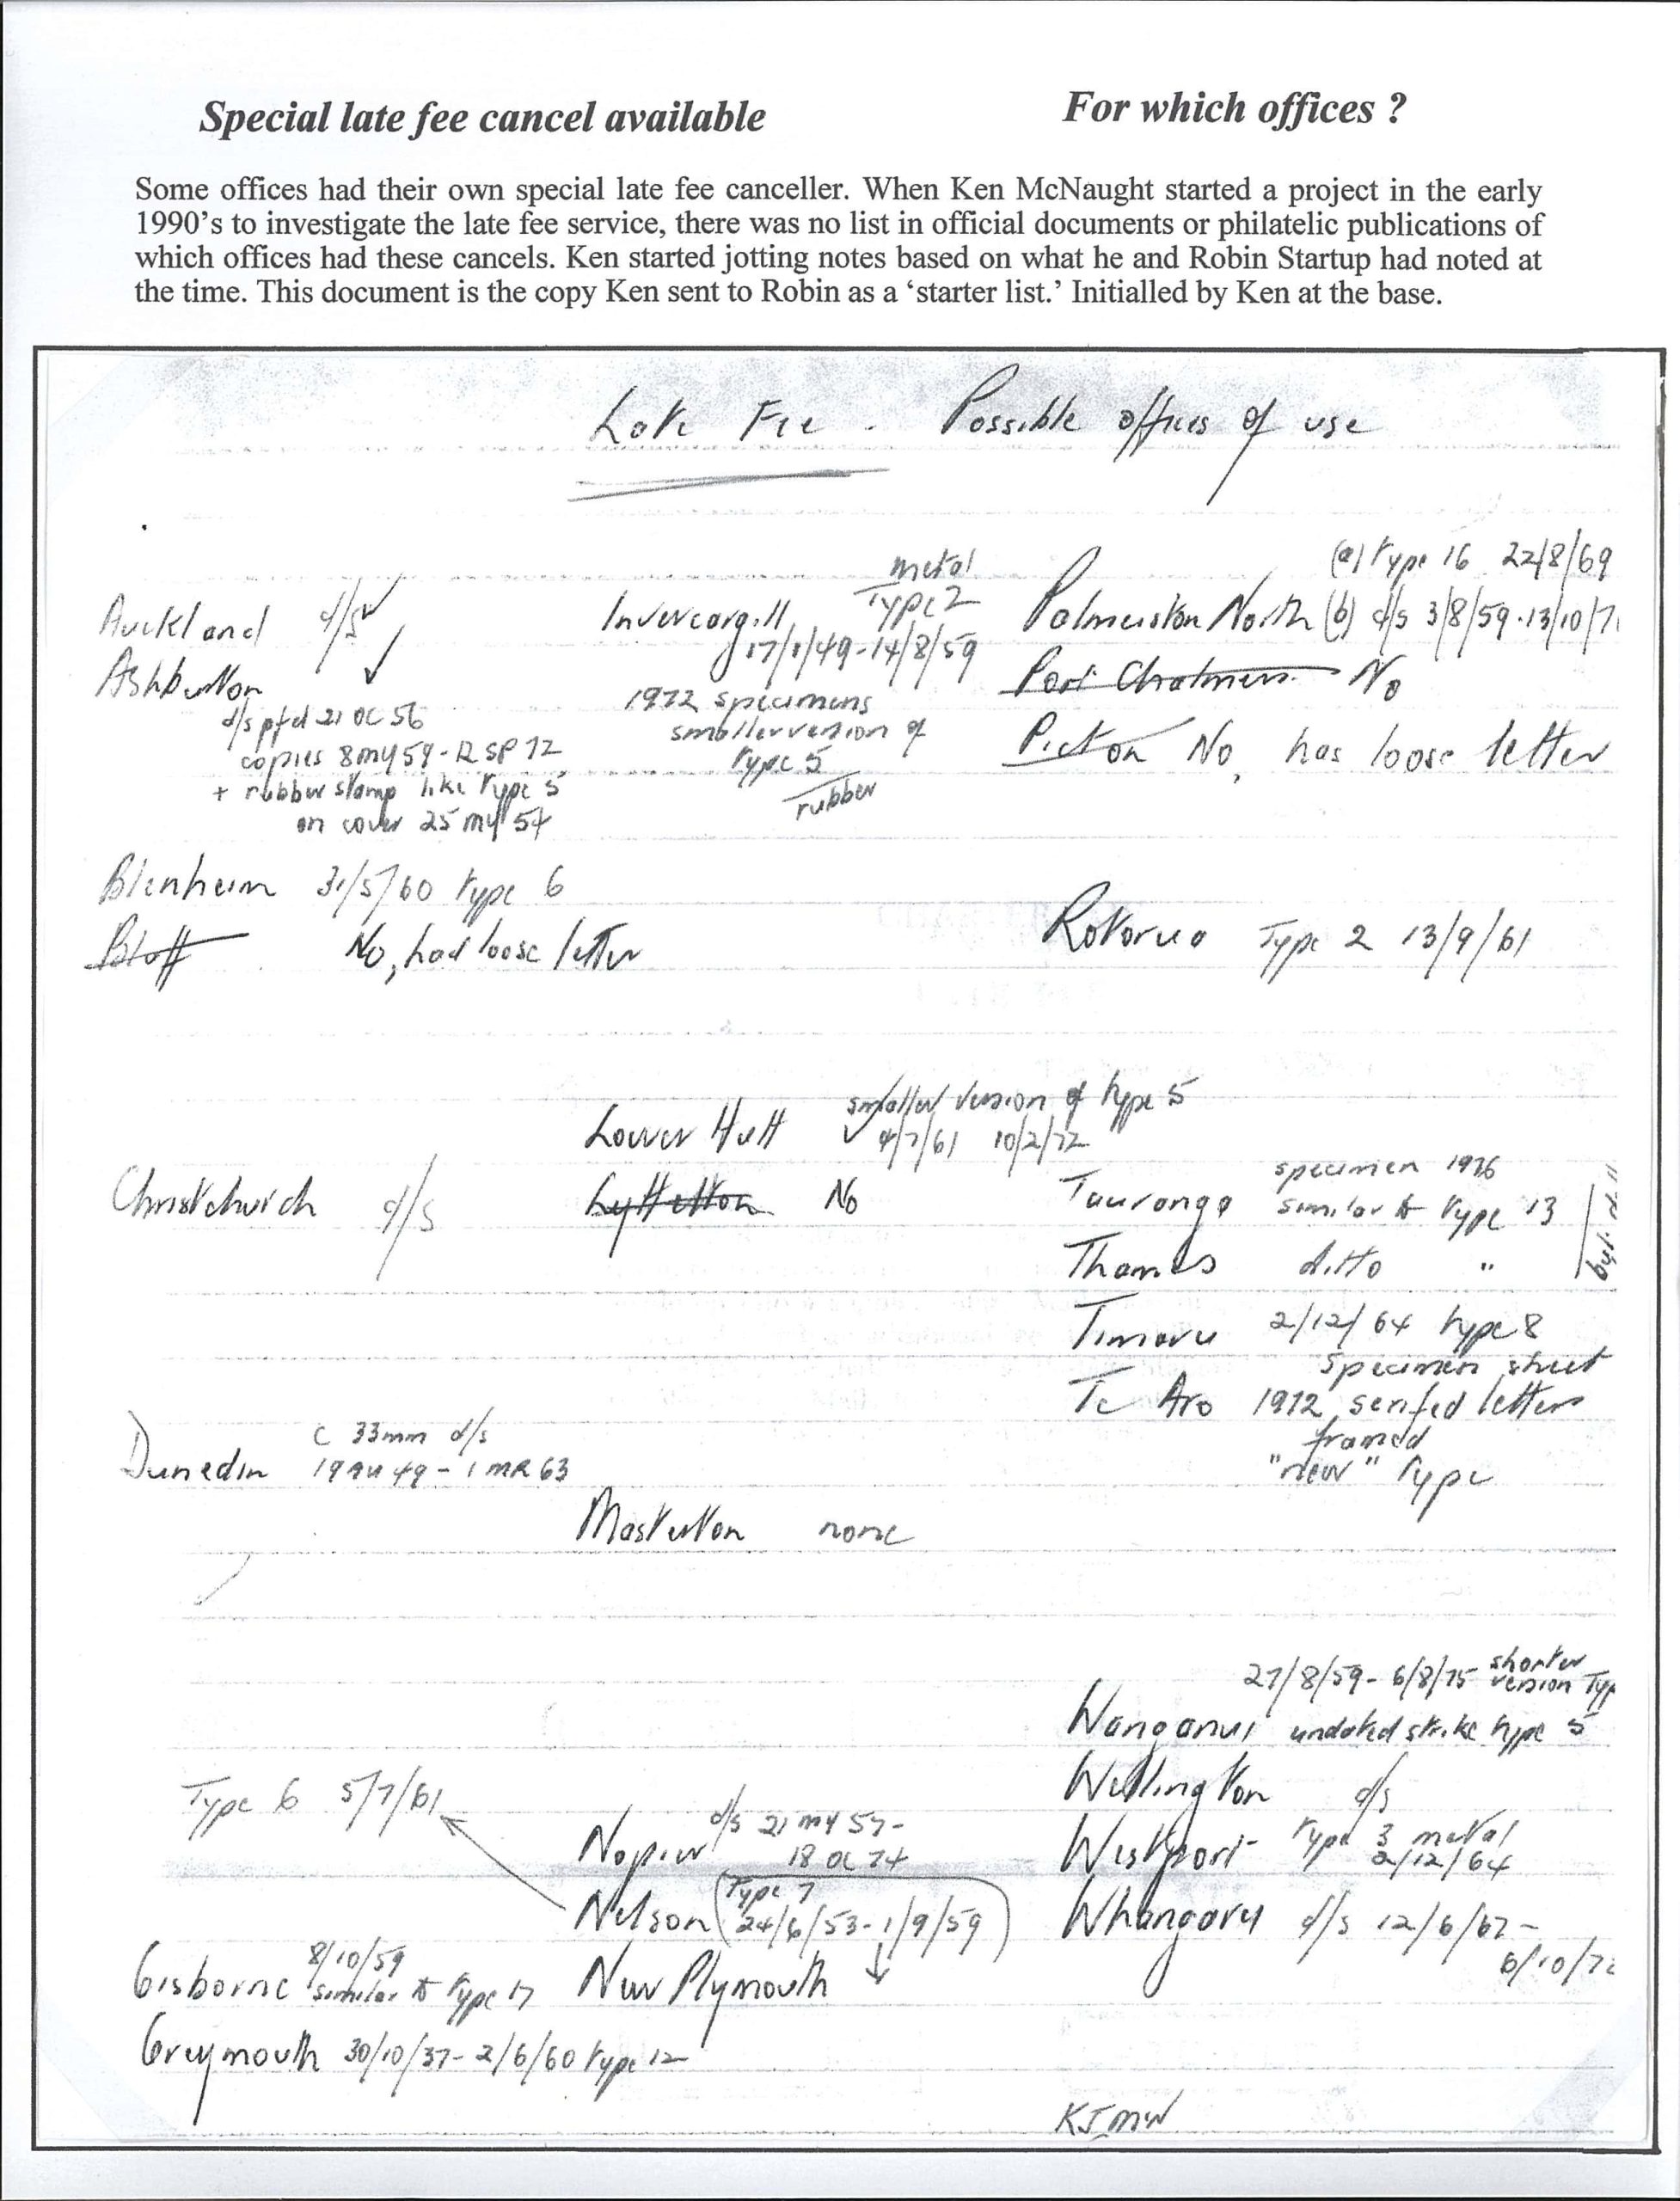 Special late fee cancel available
For which offices ?
Some offices had their own special late fee canceller. When Ken McNaught started a project in the early
1990’s to investigate the late fee service, there was no list in official documents or philatelic publications of
which offices had these cancels. Ken started jotting notes based on what he and Robin Startup had noted at
the time. This document is the copy Ken sent to Robin as a ‘starter list.’ Initialled by Ken at the base.
Late Fee - Possible offices of use
Auckland d/s ✓
Ashburton ✓
d/s pfd 21 OC 56
copies 8 MY 59 - 12 SP 72
+ rubber stamp like type 5
on cover 25 MY 54
Blenheim 31/5/60 type 6
Bluff No, had loose letter
Christchurch d/s
Dunedin c 33mm d/s
19 AU 49 - 1 MR 63
Type 6 5/7/61
Gisborne 8/10/59
similar to type 17
Greymouth 30/10/37 - 2/6/60 type 12
Invercargill metal
Type 2
17/1/49-14/8/59
1972 specimens
smaller version of
type 5
rubber
Lower Hutt smaller version of type 5
✓ 4/7/61 10/2/72
Lyttelton No
Masterton none
Napier d/s 21 MY 57 -
18 OC 74
Nelson (Type 7
24/6/53 - 1/9/59)
New Plymouth ↓
(a) type 16 22/8/69
Palmerston North (b) d/s 3/8/59-13/10/7
Port Chalmers No
Picton No, has loose letter
Rotorua Type 2 13/9/61
Tauranga specimen 1976
similar to type 13
Thames ditto "
Timaru 2/12/64 type 8
Te Aro specimen sheet
1972, serifed letters
framed
"new" type
27/8/59 - 6/8/75 shorter
version Typ
Wanganui undated strike type 5
Wellington d/s
Westport type 3 metal
2/12/64
Whangarei d/s 12/6/67 -
6/10/72
KJMcN